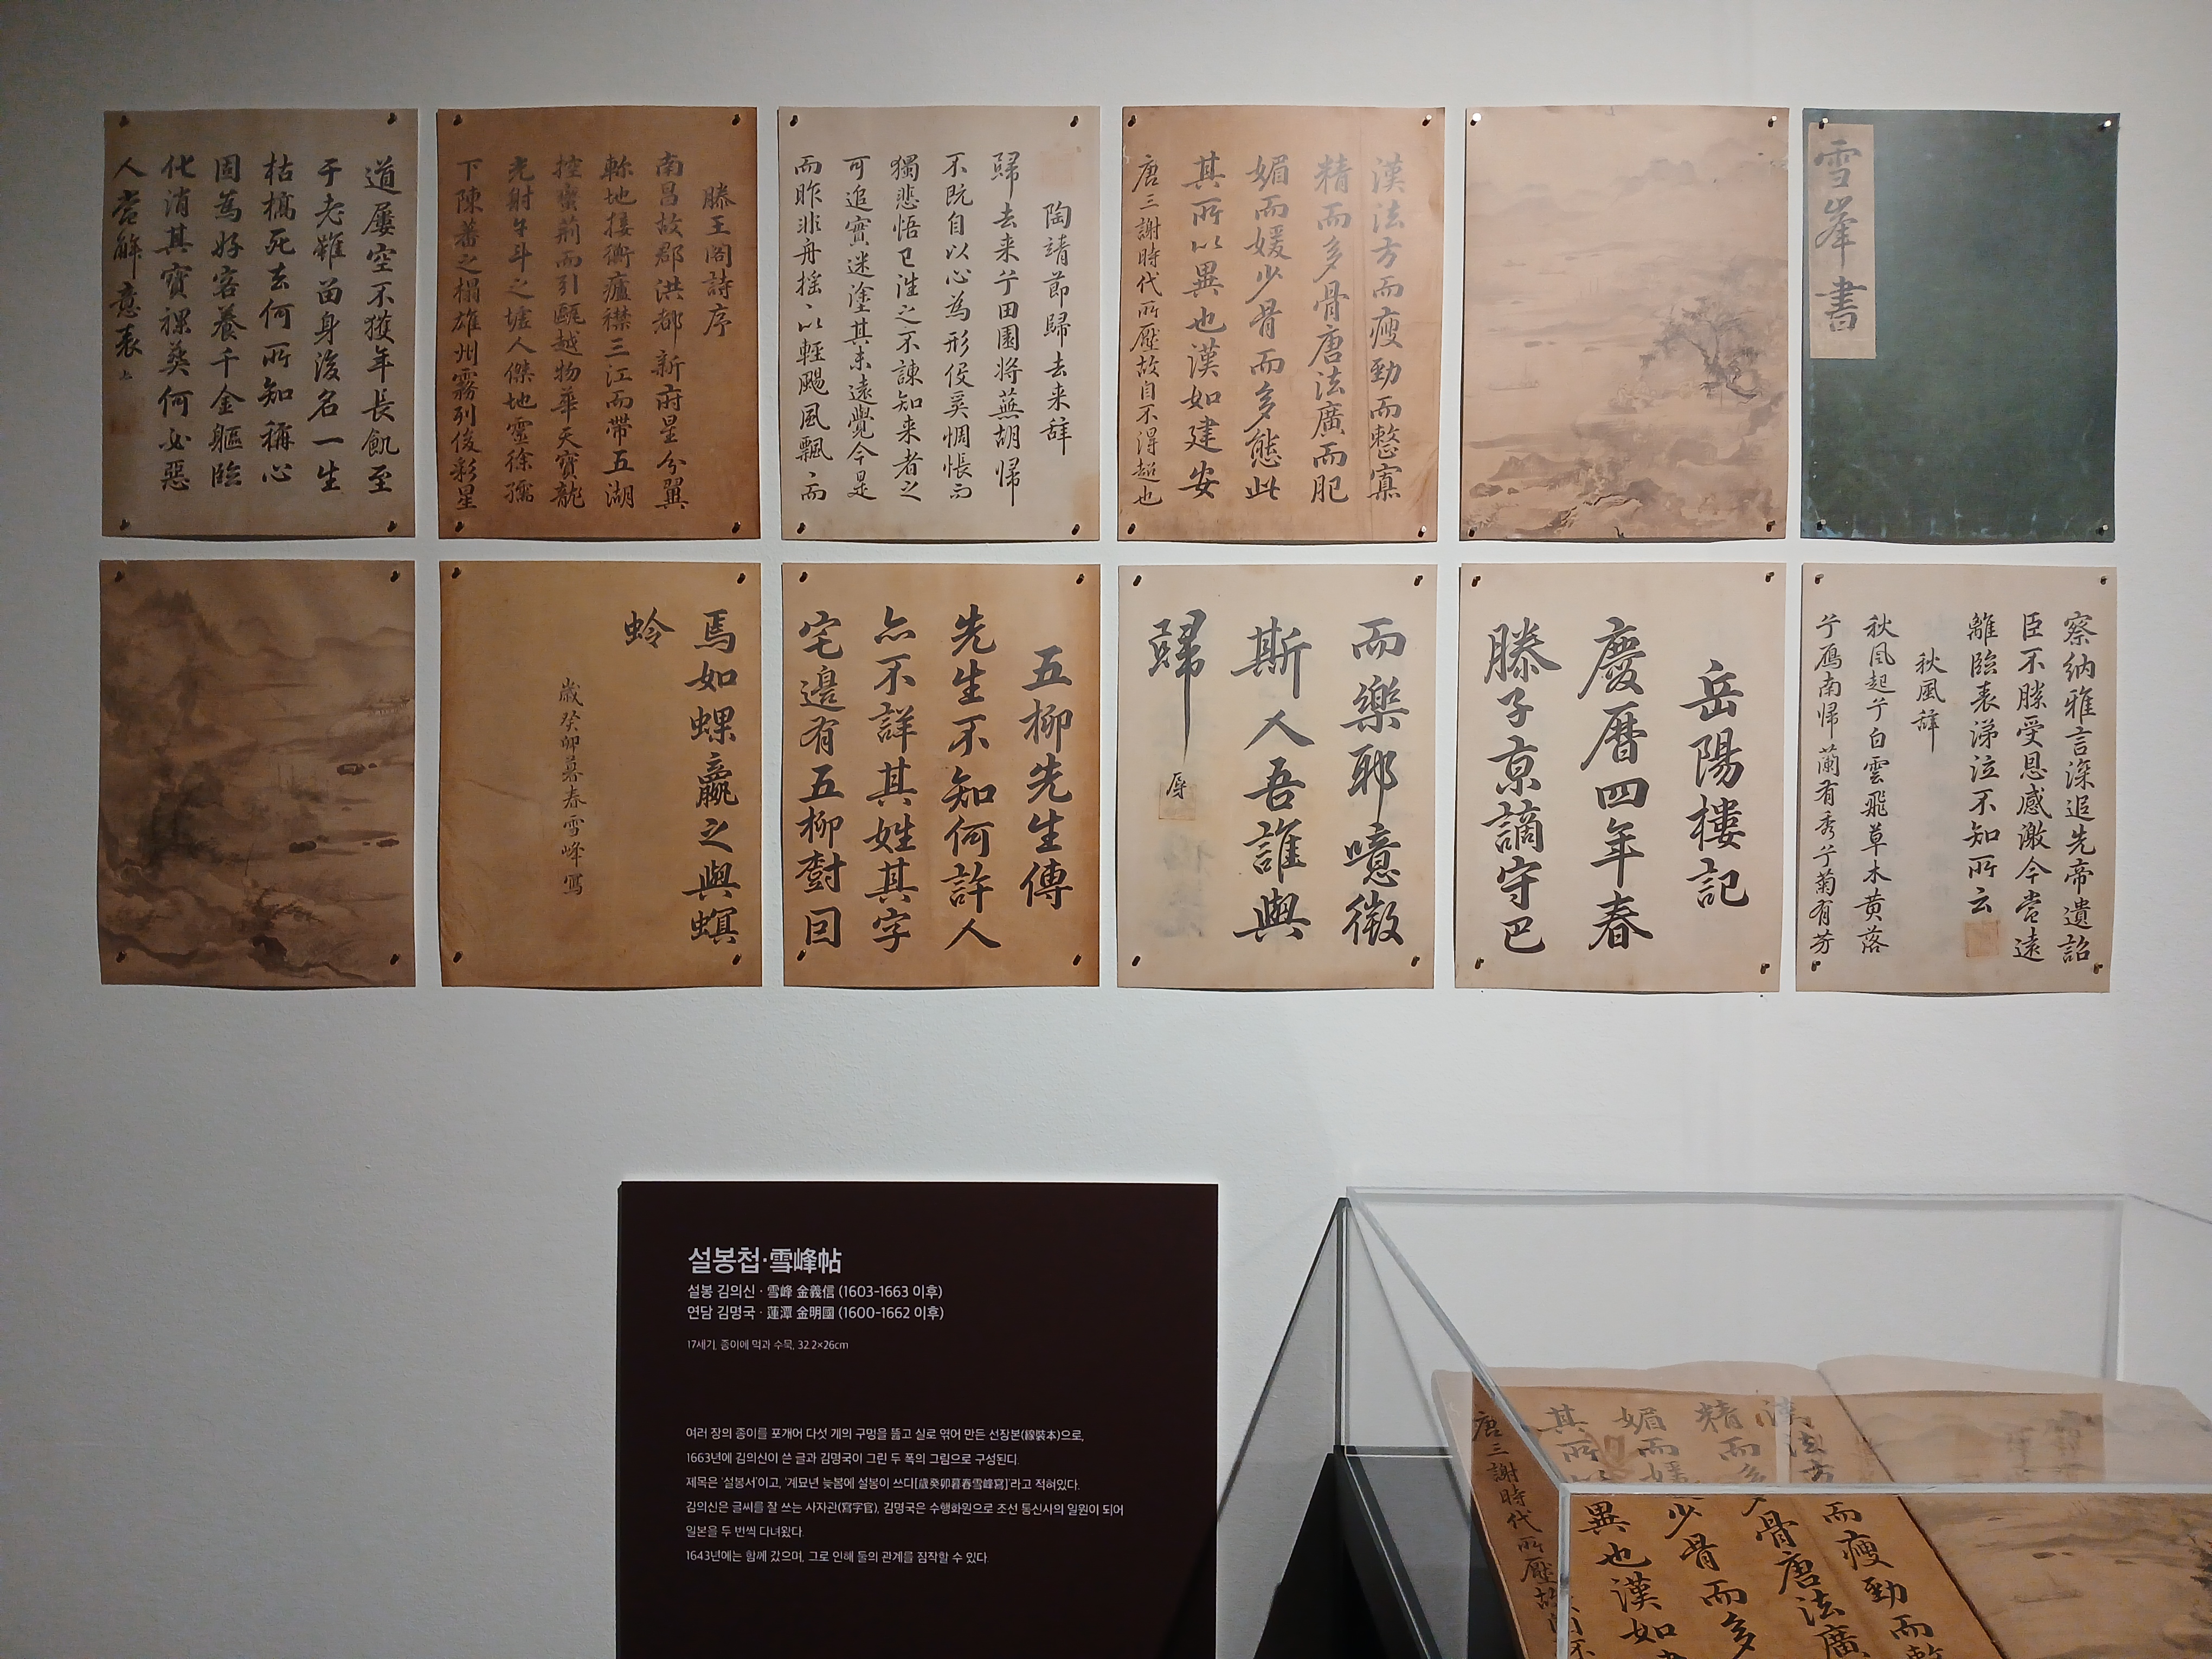 雪峯書
漢法方而瘦勁而整寡
精而多骨唐法廣而肥
媚而媛少骨而多態此
其所以異也漢如建安
唐三謝時代所壓故自不得超也
陶靖節歸去来辞
歸去来兮田園将蕪胡帰
不既自以心為形役奚惆悵而
獨悲悟已往之不諫知来者之
可追寔迷塗其未遠覺今是
而昨非舟揺〻以輕颺風飄〻而
滕王閣詩序
南昌故郡洪都新府星分翼
軫地接衡廬襟三江而帶五湖
控蠻荊而引甌越物華天寶龍
光射牛斗之墟人傑地靈徐孺
下陳蕃之榻雄州霧列俊彩星
道屢空不獲年長飢至
于老雖留身後名一生
枯槁死去何所知稱心
固為好客養千金軀臨
化消其寶裸葬何必惡
人當解意表
察納雅言深追先帝遺詔
臣不勝受恩感激今當遠
離臨表涕泣不知所云
秋風辞
秋風起兮白雲飛草木黄落
兮鴈南帰蘭有秀兮菊有芳
岳陽樓記
慶曆四年春
滕子京謫守巴
而樂耶噫微
斯人吾誰與
歸
五柳先生傳
先生不知何許人
亦不詳其姓其字
宅邊有五柳樹因
焉如蜾蠃之與螟
蛉
歳癸卯暮春雪峰寫
설봉첩·雪峰帖
설봉 김의신 · 雪峰 金義信 (1603-1663 이후)
연담 김명국 · 蓮潭 金明國 (1600-1662 이후)
17세기, 종이에 먹과 수묵, 32.2×26cm
여러 장의 종이를 포개어 다섯 개의 구멍을 뚫고 실로 엮어 만든 선장본(線裝本)으로,
1663년에 김의신이 쓴 글과 김명국이 그린 두 폭의 그림으로 구성된다.
제목은 '설봉서'이고, '계묘년 늦봄에 설봉이 쓰다[歲癸卯暮春雪峰寫]'라고 적혀있다.
김의신은 글씨를 잘 쓰는 사자관(寫字官), 김명국은 수행화원으로 조선 통신사의 일원이 되어
일본을 두 번씩 다녀왔다.
1643년에는 함께 갔으며, 그로 인해 둘의 관계를 짐작할 수 있다.
漢法方而瘦勁而整
精而骨唐法廣
媚而媛少骨而多
其所異也漢如
唐三謝時代所壓故